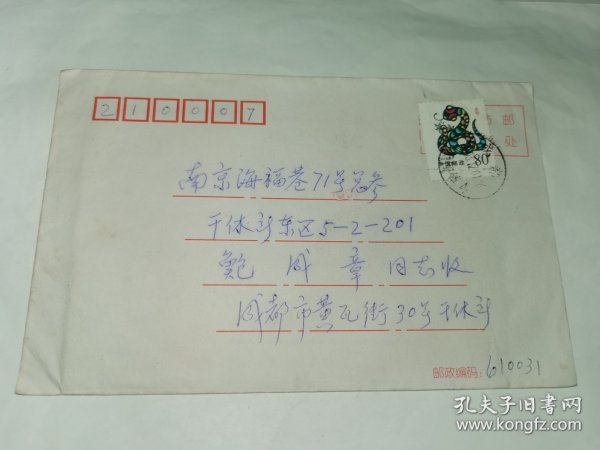 210007
贴邮
处
中国邮政 80
南京海福巷71号总参
干休所东区5-2-201
鲍成章同志收
成都市黄瓦街30号干休所
邮政编码:610031
孔夫子旧书网
www.kongfz.com